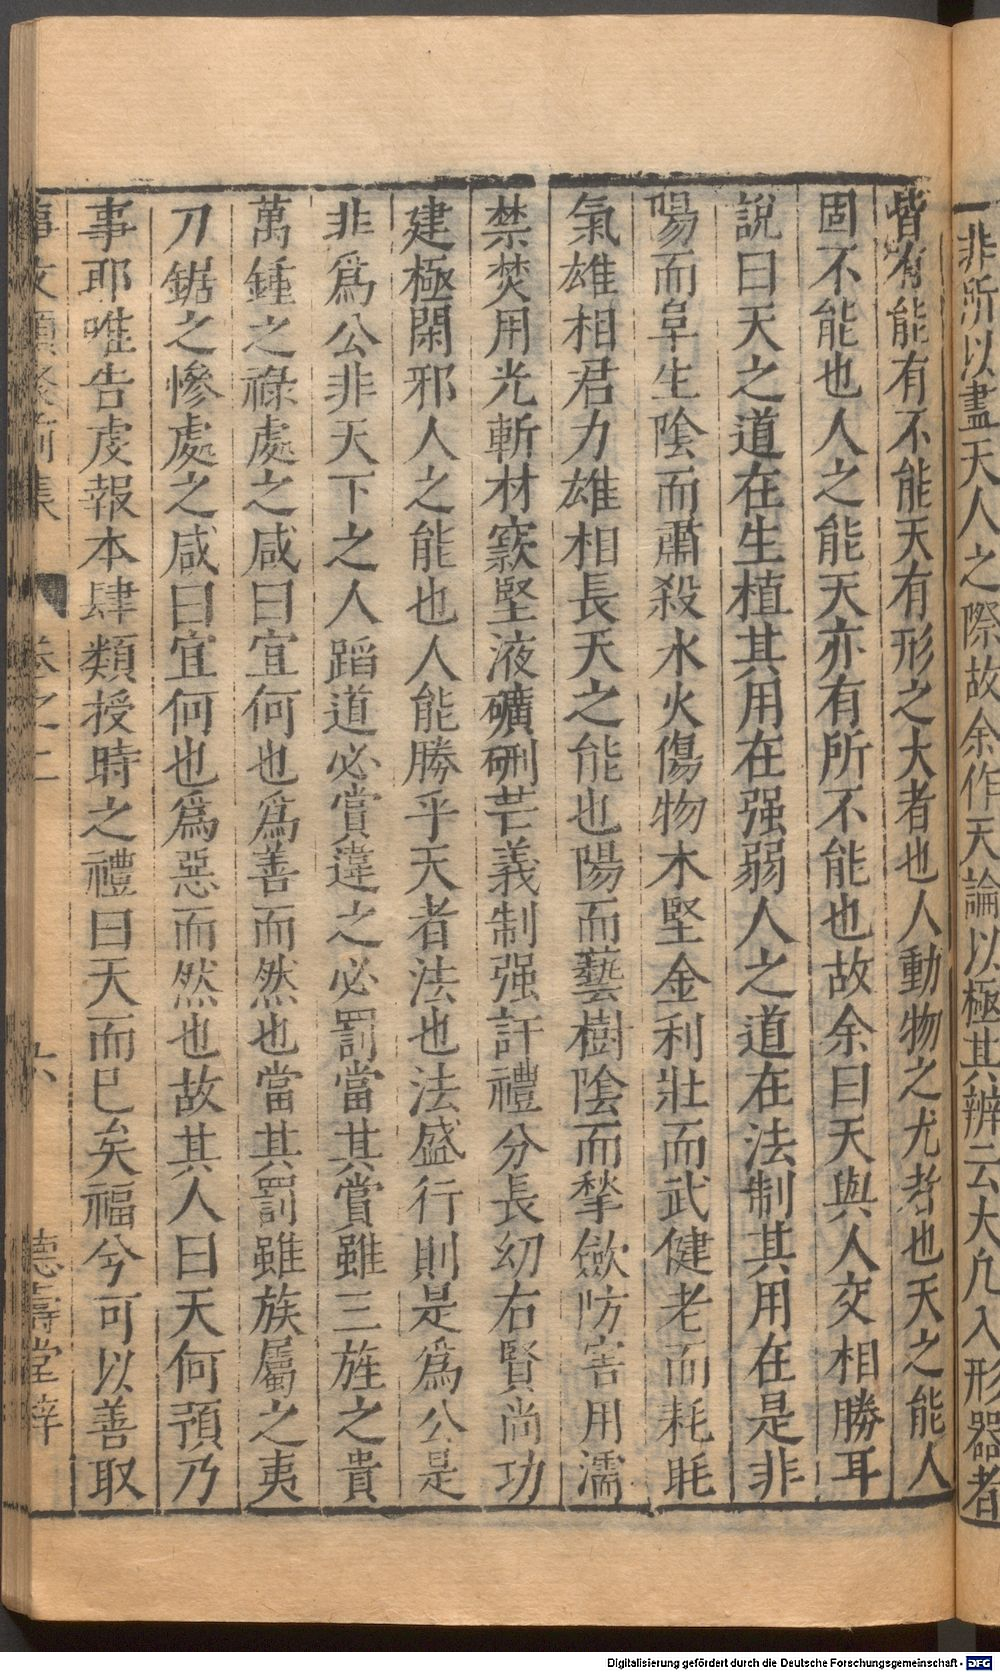 非所以盡天人之際故余作天論以極其辨云大凡入形器者
皆有能有不能天有形之大者也人動物之尤者也天之能人
固不能也人之能天亦有所不能也故余曰天與人交相勝耳
說曰天之道在生植其用在强弱人之道在法制其用在是非
陽而阜生陰而肅殺水火傷物木堅金利壯而武健老而耗眊
氣雄相君力雄相長天之能也陽而藝樹陰而揫斂防害用濡
禁焚用光斬材窾堅液礦硎芒義制强訐禮分長幼右賢尚功
建極閑邪人之能也人能勝乎天者法也法盛行則是爲公是
非爲公非天下之人蹈道必賞違之必罰當其賞雖三旌之貴
萬鍾之祿處之咸曰宜何也爲善而然也當其罰雖族屬之夷
刀鋸之慘處之咸曰宜何也爲惡而然也故其人曰天何預乃
事耶唯告虔報本肆類授時之禮曰天而已矣福兮可以善取
事文類聚前集 卷之二 六 德壽堂梓
Digitalisierung gefördert durch die Deutsche Forschungsgemeinschaft - DFG